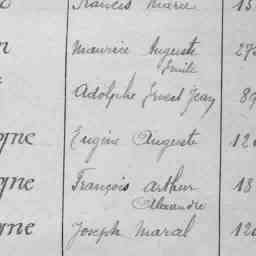 Francis Marie 15
n Maurice Auguste 27
Emile
Adolphe Ernest Jean 89
gne Eugène Auguste 12
gne François Arthur 18
Alexandre
gne Joseph Maral 12